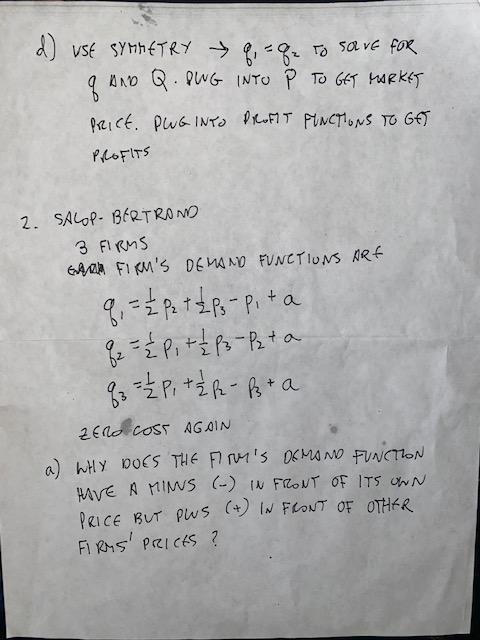 d) USE SYMMETRY → q₁ = q₂ TO SOLVE FOR
q AND Q. PLUG INTO P TO GET MARKET
PRICE. PLUG INTO PROFIT FUNCTIONS TO GET
PROFITS
2. SALOP-BERTRAND
3 FIRMS
FIRM'S DEMAND FUNCTIONS ARE
q₁ = ½ p₂ + ½ p₃ - p₁ + a
q₂ = ½ p₁ + ½ p₃ - p₂ + a
q₃ = ½ p₁ + ½ p₂ - p₃ + a
ZERO COST AGAIN
a) WHY DOES THE FIRM'S DEMAND FUNCTION
HAVE A MINUS (-) IN FRONT OF ITS OWN
PRICE BUT PLUS (+) IN FRONT OF OTHER
FIRMS' PRICES ?